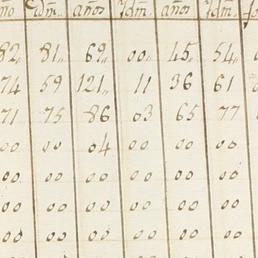 ño Idm. años Idm. años Idm.
82,, 81,, 69,, 00,, 45,, 54,,
74 59 121,, 11 36 61
71 75 86 03 65 77
00 00 04 00 00 00
00 00 00 00 00 00
00 00 00 00 00 00
00 00 00 00 00 00